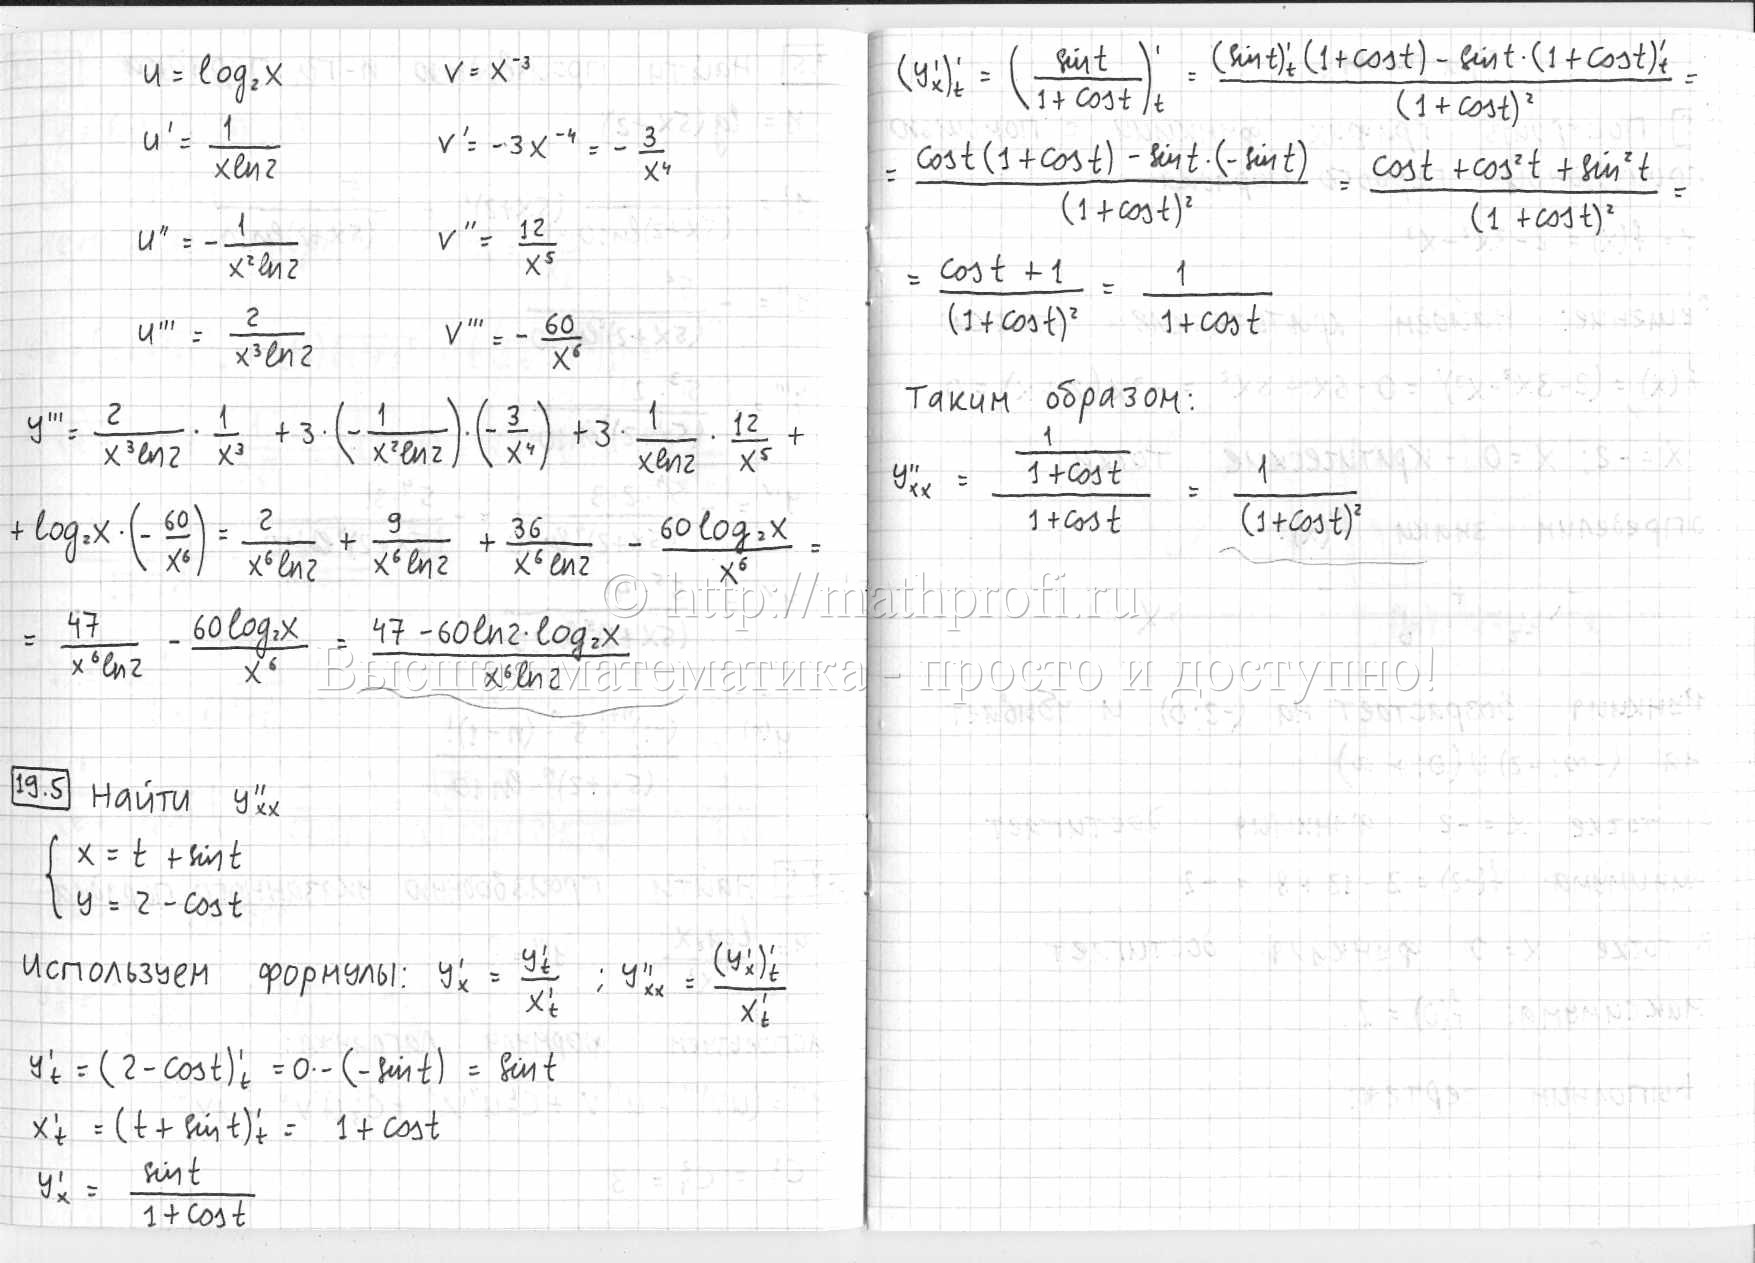 u = log₂x    v = x⁻³
u' = 1/(x ln2)    v' = -3x⁻⁴ = -3/x⁴
u'' = -1/(x² ln2)    v'' = 12/x⁵
u''' = 2/(x³ ln2)    v''' = -60/x⁶
y''' = 2/(x³ ln2) · 1/x³ + 3·(-1/(x² ln2))·(-3/x⁴) + 3· 1/(x ln2) · 12/x⁵ +
+ log₂x·(-60/x⁶) = 2/(x⁶ ln2) + 9/(x⁶ ln2) + 36/(x⁶ ln2) - 60 log₂x/x⁶ =
= 47/(x⁶ ln2) - 60 log₂x/x⁶ = (47 - 60 ln2·log₂x)/(x⁶ ln2)
19.5 Найти y''ₓₓ
{ x = t + sin t
y = 2 - cos t
Используем формулы: y'ₓ = y'ₜ/x'ₜ ; y''ₓₓ = (y'ₓ)'ₜ/x'ₜ
y'ₜ = (2 - cos t)'ₜ = 0 - (-sin t) = sin t
x'ₜ = (t + sin t)'ₜ = 1 + cos t
y'ₓ = sin t/(1 + cos t)
(y'ₓ)'ₜ = (sin t/(1 + cos t))'ₜ = ((sin t)'ₜ(1 + cos t) - sin t·(1 + cos t)'ₜ)/(1 + cos t)² =
= (cos t(1 + cos t) - sin t·(-sin t))/(1 + cos t)² = (cos t + cos² t + sin² t)/(1 + cos t)² =
= (cos t + 1)/(1 + cos t)² = 1/(1 + cos t)
Таким образом:
y''ₓₓ = (1/(1 + cos t))/(1 + cos t) = 1/(1 + cos t)²
© http://mathprofi.ru
Высшая математика - просто и доступно!